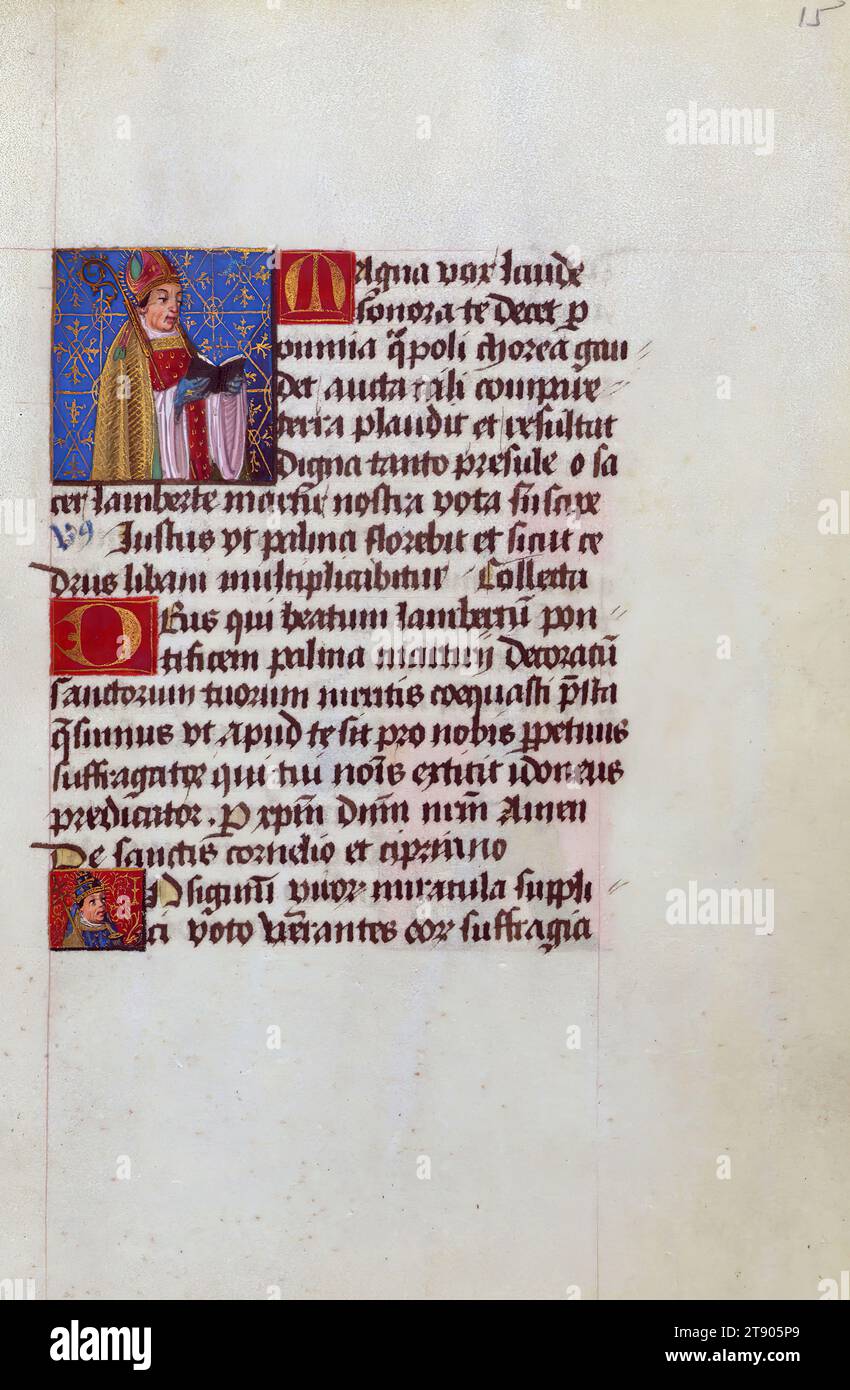 15
Magna vox laude
sonora te decet p
omnia q̄ poli chorea gau〃
det aucta tali compare
terra plaudit et resultat
digna tanto presule o sa
cer lamberte martir̄ nostra vota suscipe
Justus vt palma florebit et sicut ce
drus libani multiplicabitur Collecta
Deus qui beatum lambertū pon〃
tificem palma martirij decoratū
sanctorum tuorum meritis coequasti p̄sta
q̄sumus vt apud te sit pro nobis ꝑpetuus
suffragator qui tui nois̄ extitit idoneus
predicator. P xp̄m dn̄m nr̄m Amen
De sanctis cornelio et cipriano
signū vuor miracula suppli〃
ci voto ven̄rantes eor suffragia
alamy
Image ID: 2T905P9
www.alamy.com